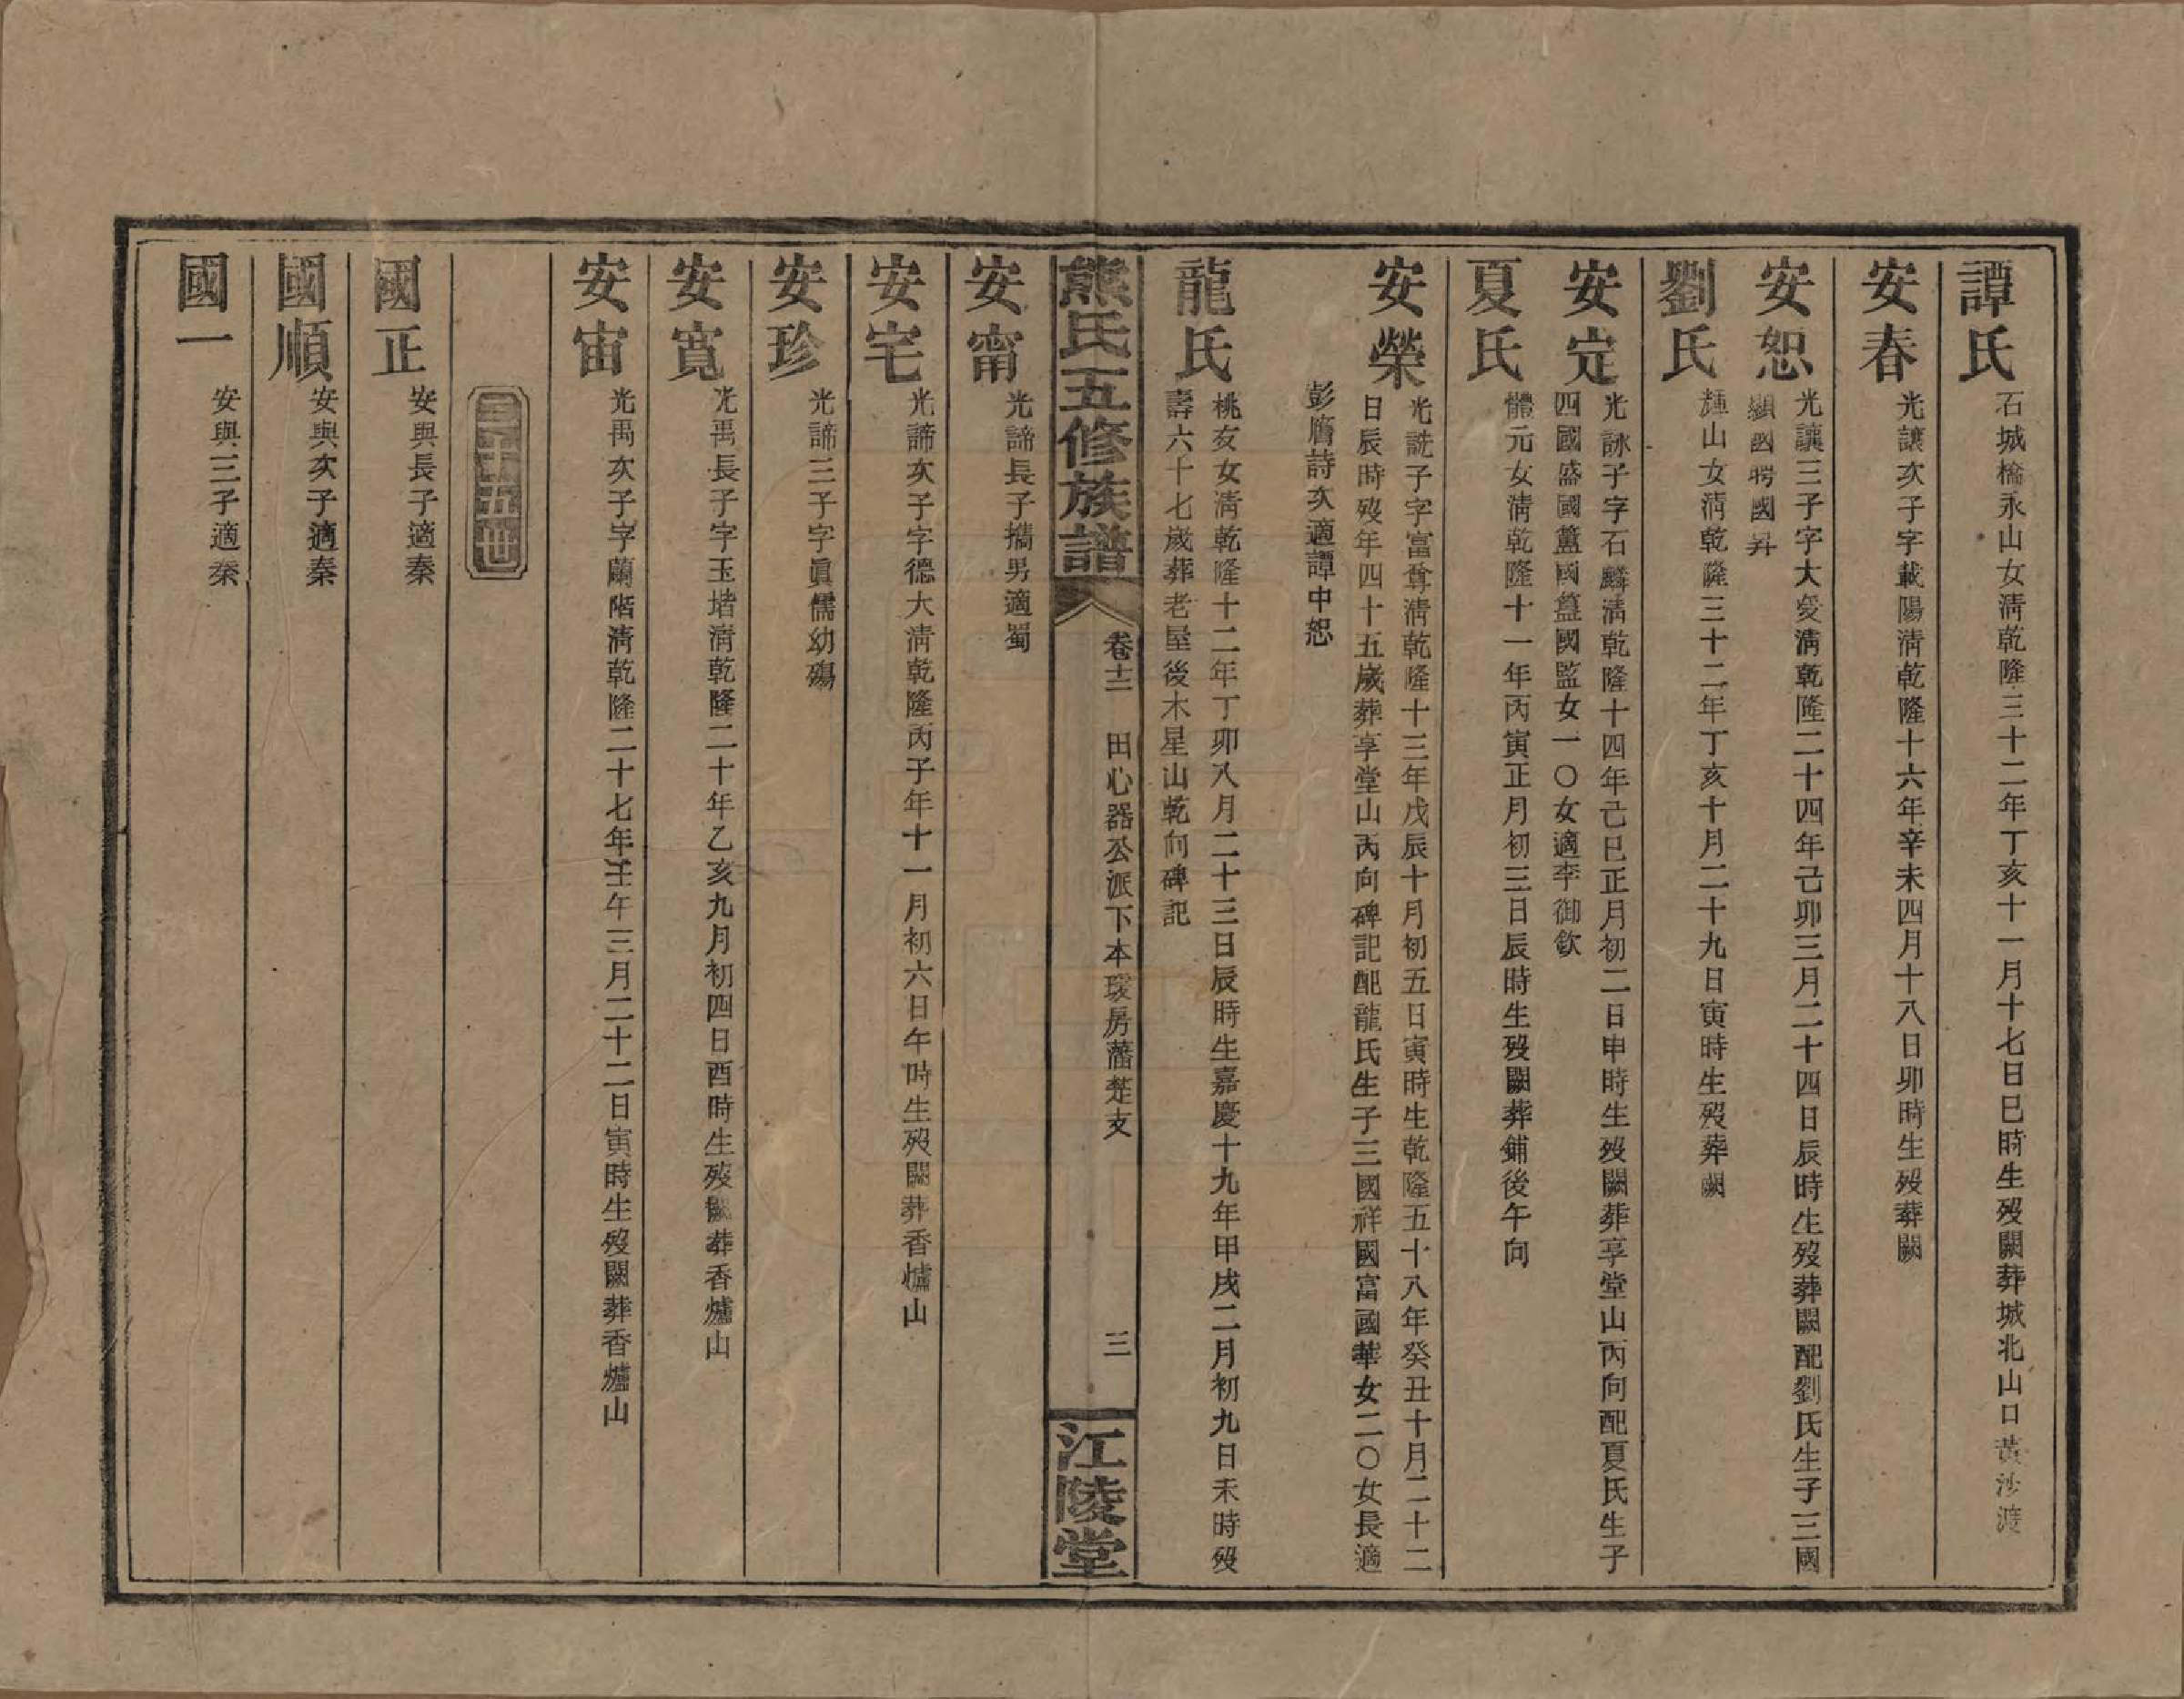 譚氏
石城檎永山女清乾隆三十二年丁亥十一月十七日巳時生歿闕葬城北山口黃沙渡
安春
光讓次子字載陽清乾隆十六年辛未四月十八日卯時生歿葬闕
安恕
光讓三子字大爰清乾隆二十四年己卯三月二十四日辰時生歿葬闕配劉氏生子三國
顯國騁國昇
劉氏
輝山女清乾隆三十二年丁亥十月二十九日寅時生歿葬闕
安定
光詠子字石麟清乾隆十四年己巳正月初二日申時生歿闕葬享堂山丙向配夏氏生子
四國盛國簠國簋國監女一〇女適李御欽
夏氏
體元女清乾隆十一年丙寅正月初三日辰時生歿闕葬鋪後午向
安榮
光詵子字富尊清乾隆十三年戊辰十月初五日寅時生乾隆五十八年癸丑十月二十二
日辰時歿年四十五歲葬享堂山丙向碑記配龍氏生子三國祥國富國華女二〇女長適
彭膺詩次適譚中恕
龍氏
桃友女清乾隆十二年丁卯八月二十三日辰時生嘉慶十九年甲戌二月初九日未時歿
壽六十七歲葬老屋後木星山乾向碑記
熊氏五修族譜
卷十二 田心器公派下本瑗房藩楚支 三
江陵堂
安甯
光諦長子攜男適蜀
安宅
光諦次子字德大清乾隆丙子年十一月初六日午時生歿闕葬香爐山
安珍
光諦三子字眞儒幼殤
安寬
光禹長子字玉堦清乾隆二十年乙亥九月初四日酉時生歿闕葬香爐山
安宙
光禹次子字蘭階清乾隆二十七年壬午三月二十二日寅時生歿闕葬香爐山
三十五世
國正
安與長子適秦
國順
安與次子適秦
國一
安與三子適秦